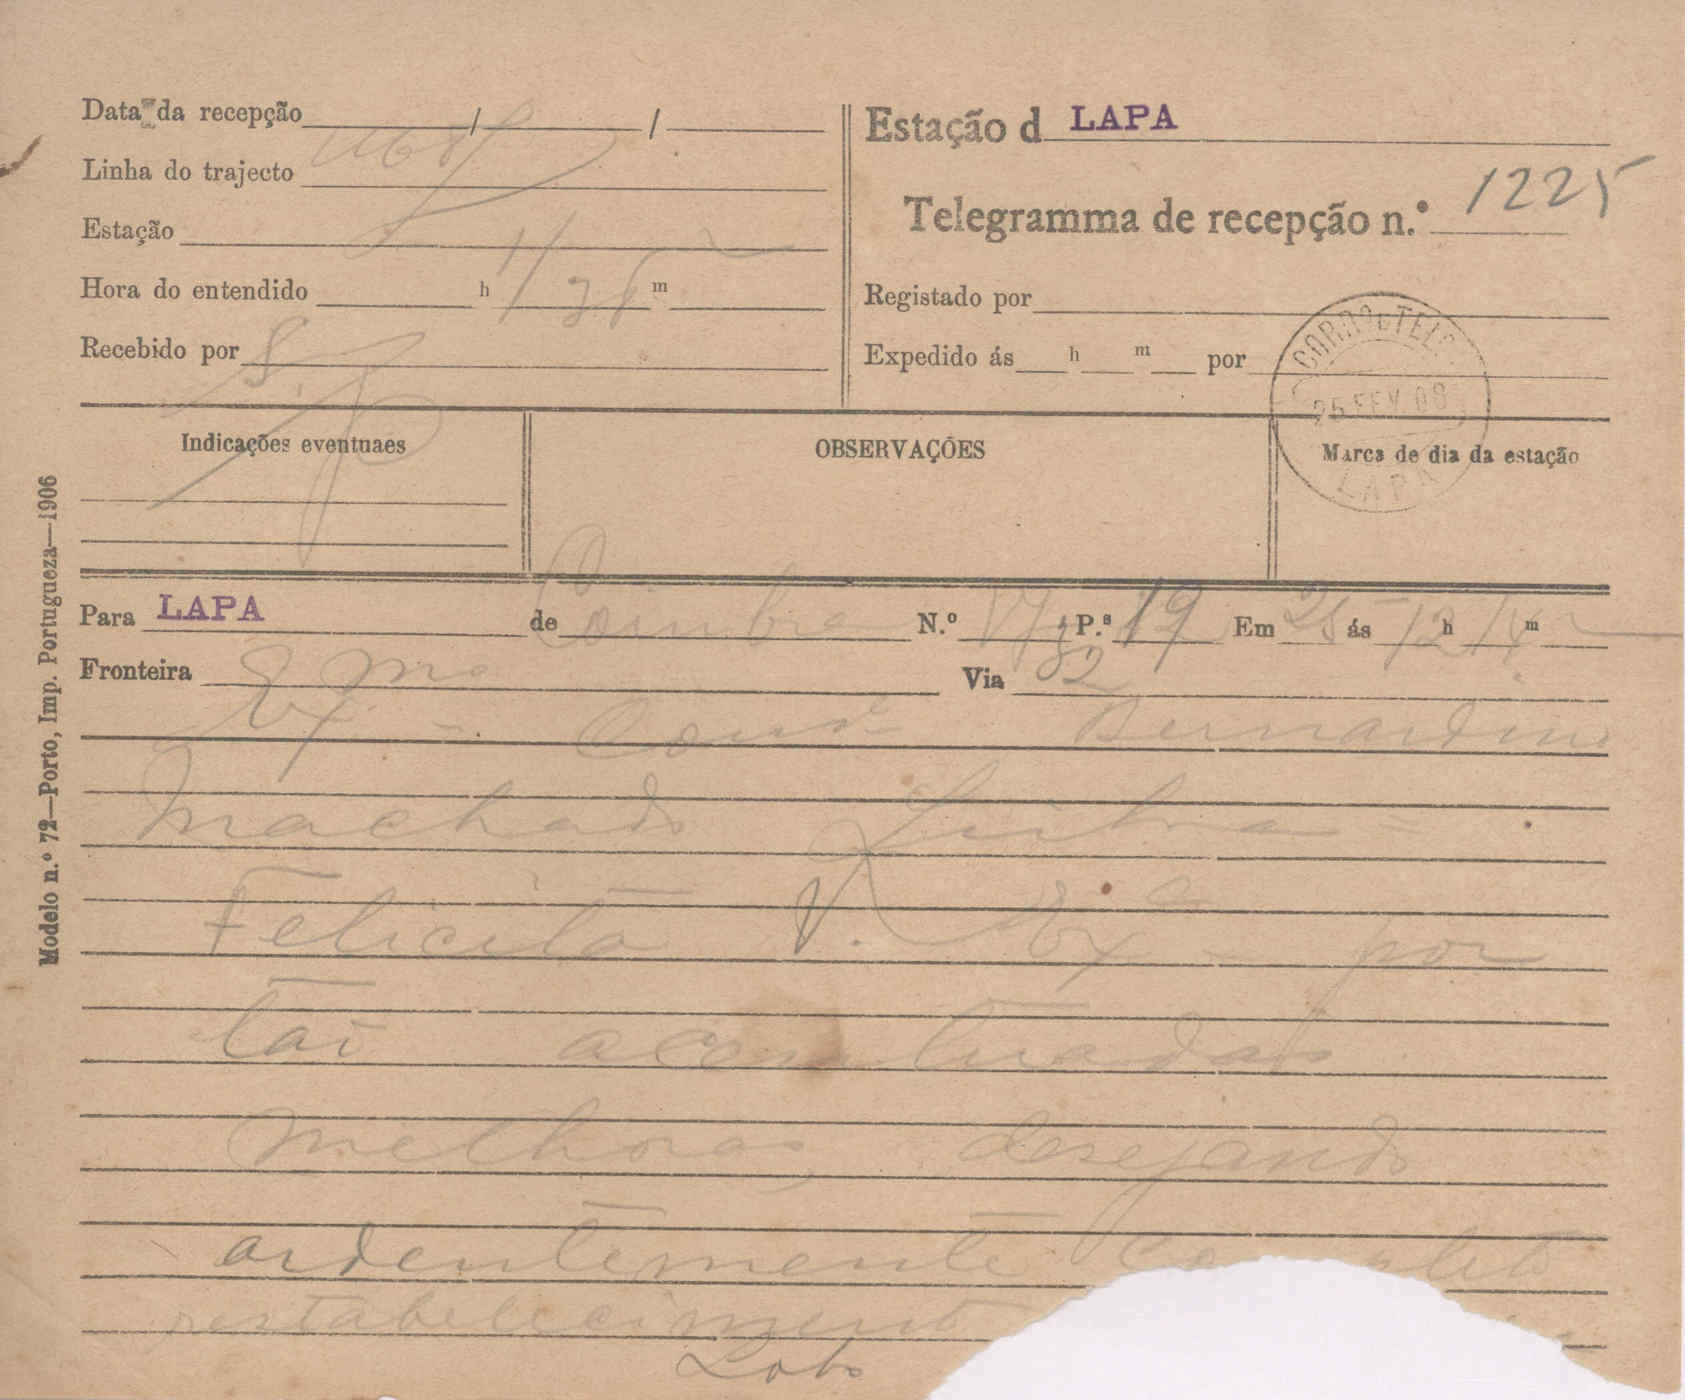 Data da recepção / /
Linha do trajecto
Estação
Hora do entendido h m
Recebido por
Estação d LAPA
Telegramma de recepção n.º 1225
Registado por
Expedido ás h m por
CORRO E TELO
25 FEV 08
LAPA
Indicações eventuaes
OBSERVAÇÕES
Marca de dia da estação
Modelo n.º 72—Porto, Imp. Portugueza—1906
Para LAPA de Coimbra N.º P.ª 19 Em 25 ás 12 h m
Fronteira Via
Ex mo Consº Bernardino
Machado Lisboa =
Felicito V. Ex ª por
tão acentuadas
melhoras, desejando
ardentemente completo
restabelecimento
Lobo